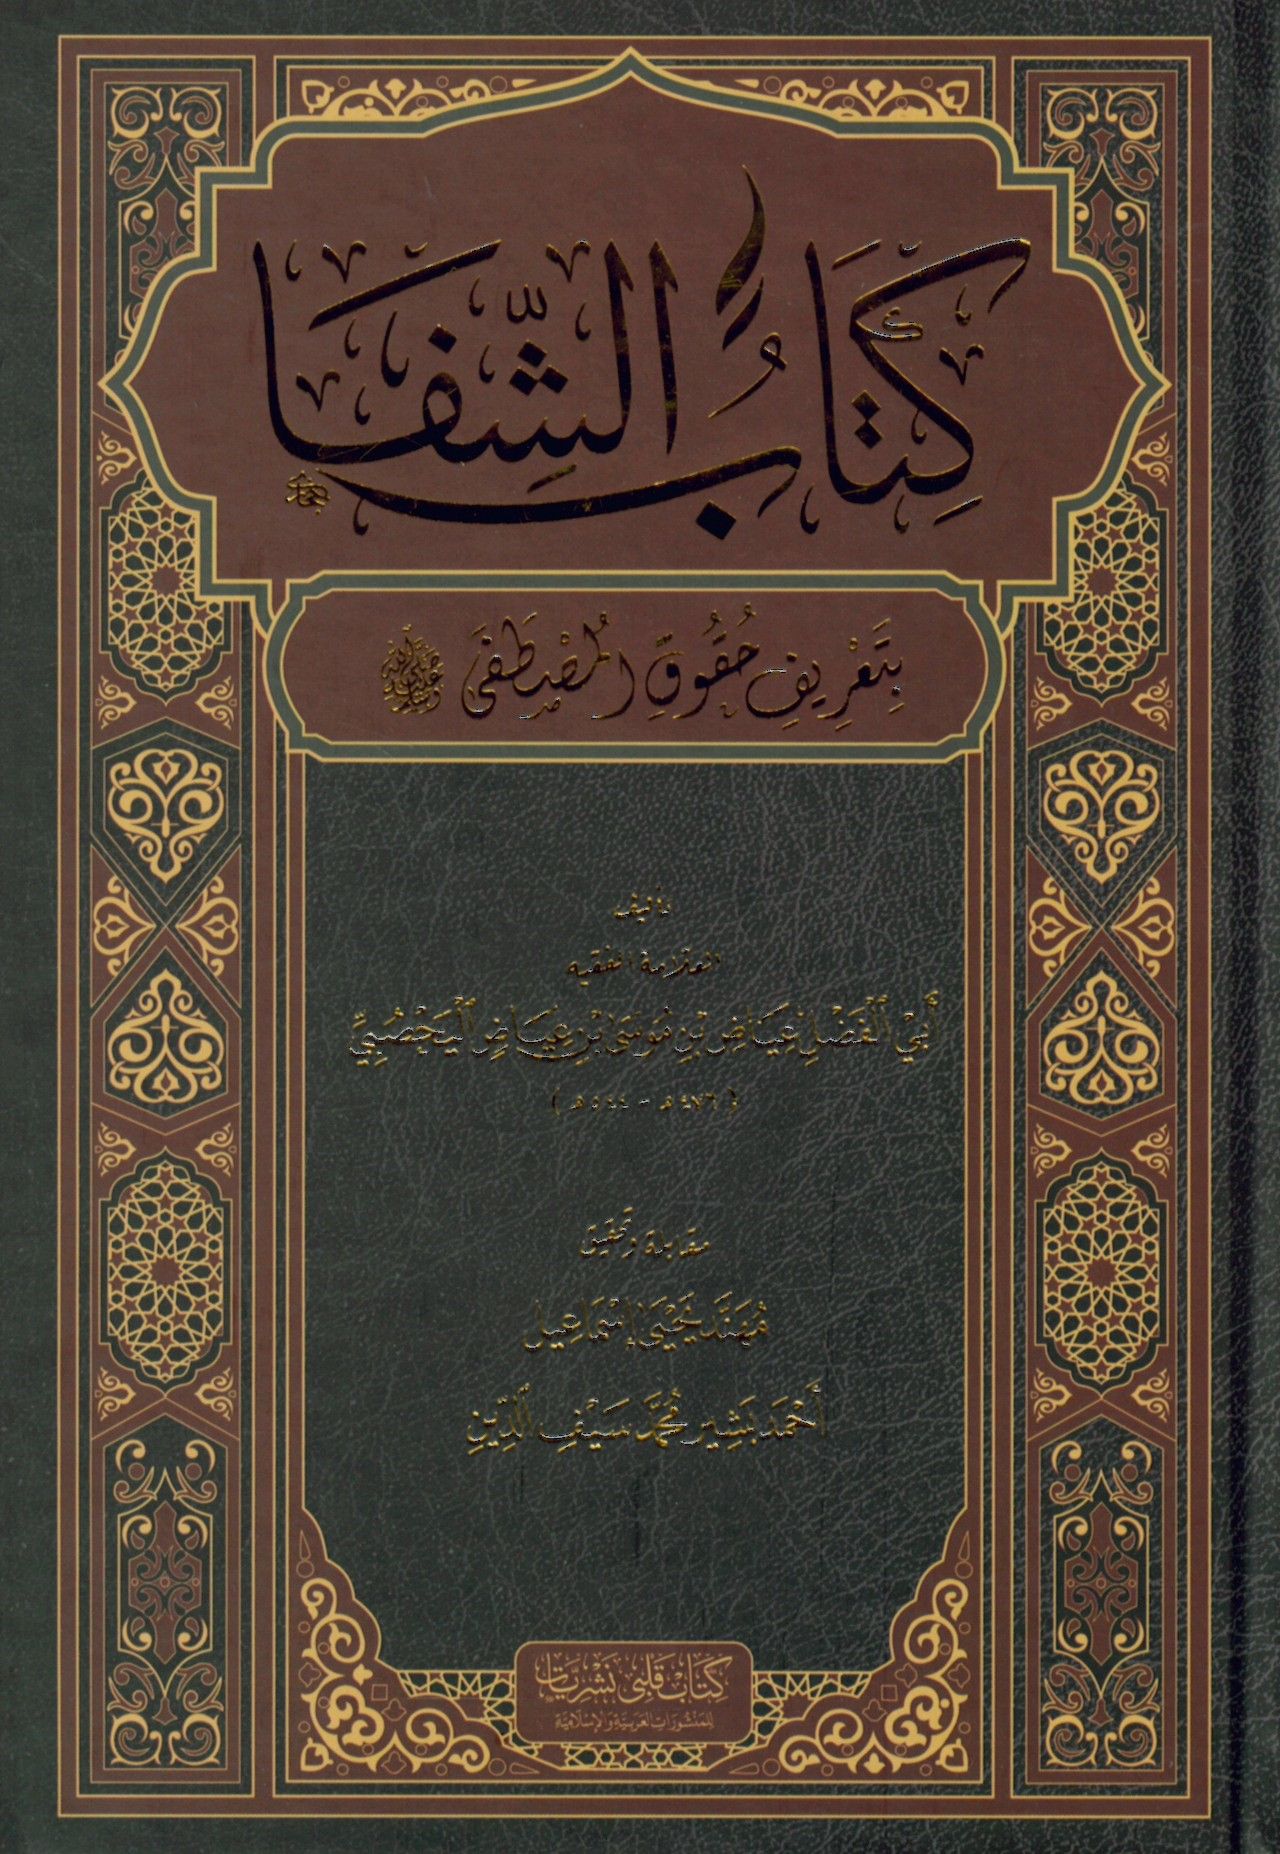 كِتَابُ الشِّفَا
بِتَعْرِيفِ حُقُوقِ الْمُصْطَفَى ﷺ
تأليف
العلامة الفقيه
أَبِي الْفَضْلِ عِيَاضِ بْنِ مُوسَى بْنِ عِيَاضٍ الْيَحْصُبِيِّ
(٤٧٦هـ - ٥٤٤هـ)
مقابلة وتحقيق
مُهَنَّد يَحْيَى إِسْمَاعِيل
أَحْمَد بَشِير مُحَمَّد سَيْفِ الدِّينِ
كِتَاب قَلبى نَشْرِيَات
للمنشورات العربية والإسلامية